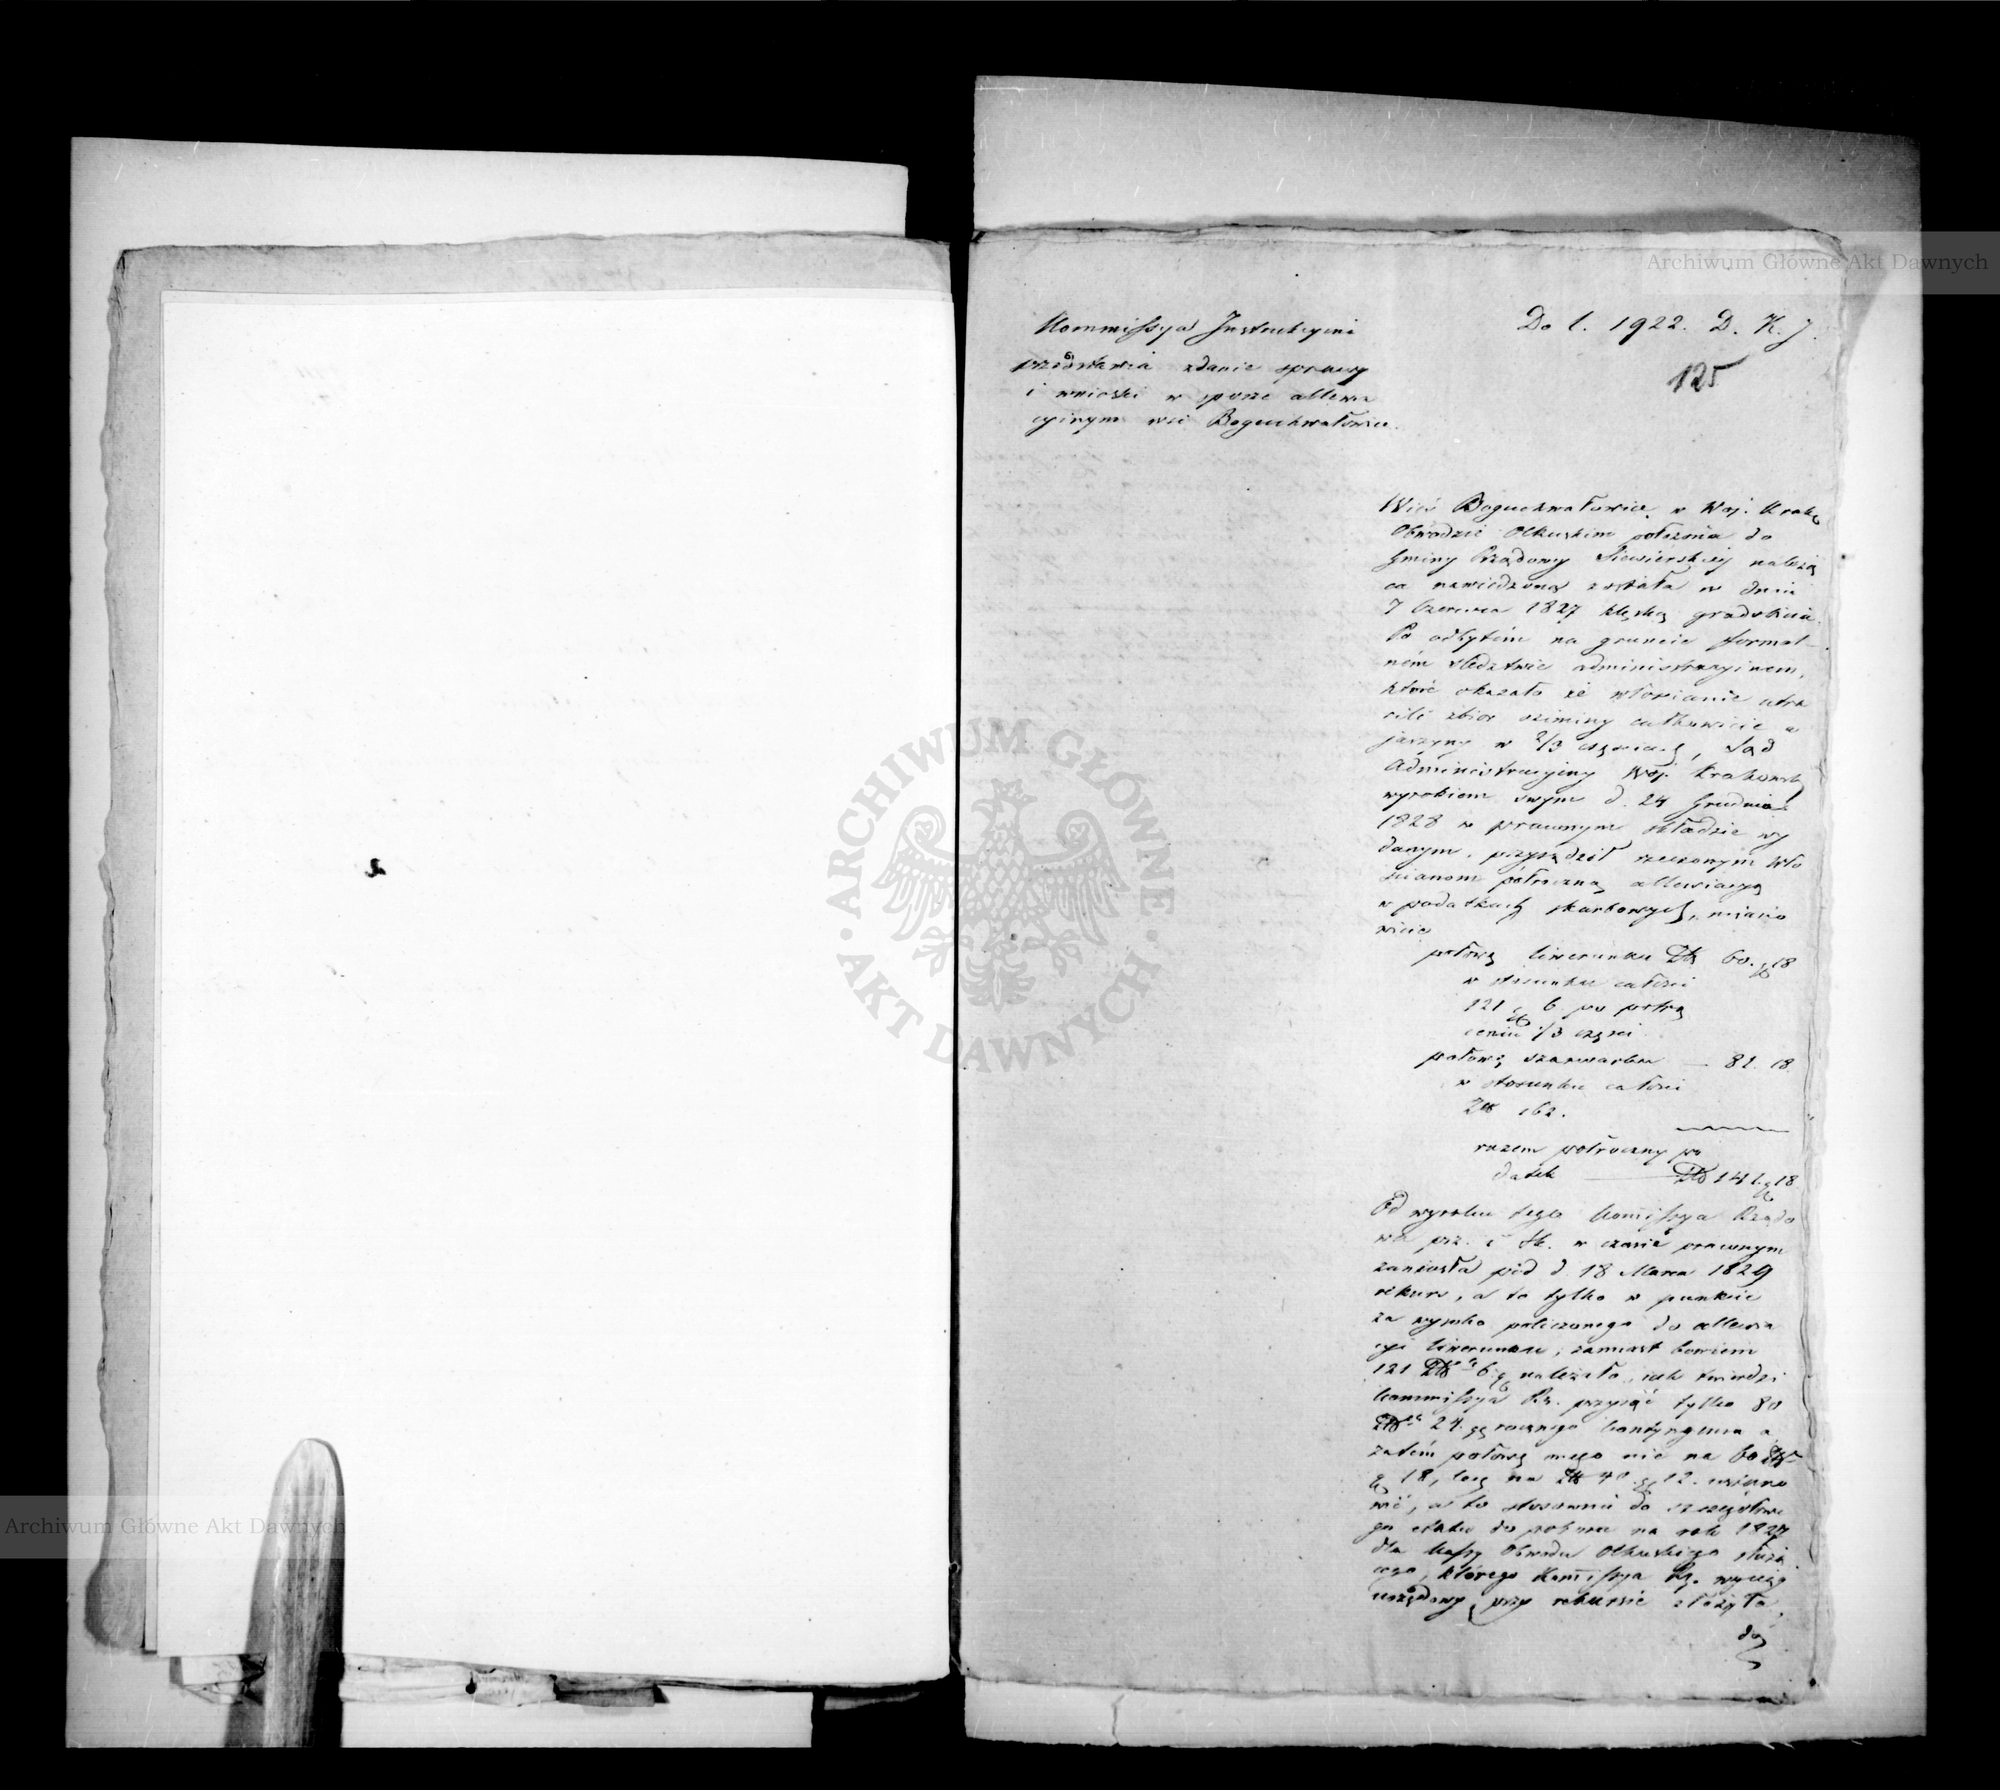 Archiwum Główne Akt Dawnych
Do l. 1922. D. K. J.
125
Kommissya Instrukcyina
przedstawia zdanie sprawy
i wnioski w sporze allewia
cyinym wsi Boguchwałowice.
Wieś Boguchwałowice w Woj. Krako
Obwodzie Olkuskim położona do
Gminy Rządowy Siewierskiey należą
ca nawiedzona została w dniu
7 Czerwca 1827 klęską gradobicia.
Po odbytém na gruncie formal
ném śledztwie administracyinem,
które okazało że włościanie utra
cili zbior oziminy całkowicie a
jarzyny w 2/3 częściach, Sąd
Administracyiny Woj. Krakowsk
wyrokiem swym d. 24 Grudnia
1828 w prawnym składzie wy
danym, przysądził rzeczonym Wło
scianom półroczną allewiacyą
w podatkach skarbowych, miano
wicie
połowę liwerunku Złp 60. gr 18
w stosunku całości
121 gr 6 po potrą
ceniu 1/3 części
połowę szarwarku — 81. 18.
w stosunku całości
Złp 162.
razem półroczny po
datek Złp 141 gr 18.
Od wyroku tego Kommissya Rządo
wa prz. i sk. w czasie prawnym
zaniosła pod d. 18 Marca 1829
rekurs, a to tylko w punkcie
za wysoko policzonego do allewia
cyi liwerunku, zamiast bowiem
121 Złp 6 gr należało, jak twierdzi
Kommissya Rz. przyiąć tylko 80
Złp 24 gr rocznego kontyngensu a
zatém połowę onego nie na 60 Złp
gr 18, lecz na Złp 40 gr 12. ustano
wić, a to stosownie do szczegółowe
go etatu do poboru na rok 1827
dla Kassy Obwodu Olkuskiego służą
cego, którego Kommissya Rz. wyciąg
urzędowy przy rekursie złożyła,
do
ARCHIWUM GŁÓWNE
AKT DAWNYCH
Archiwum Główne Akt Dawnych